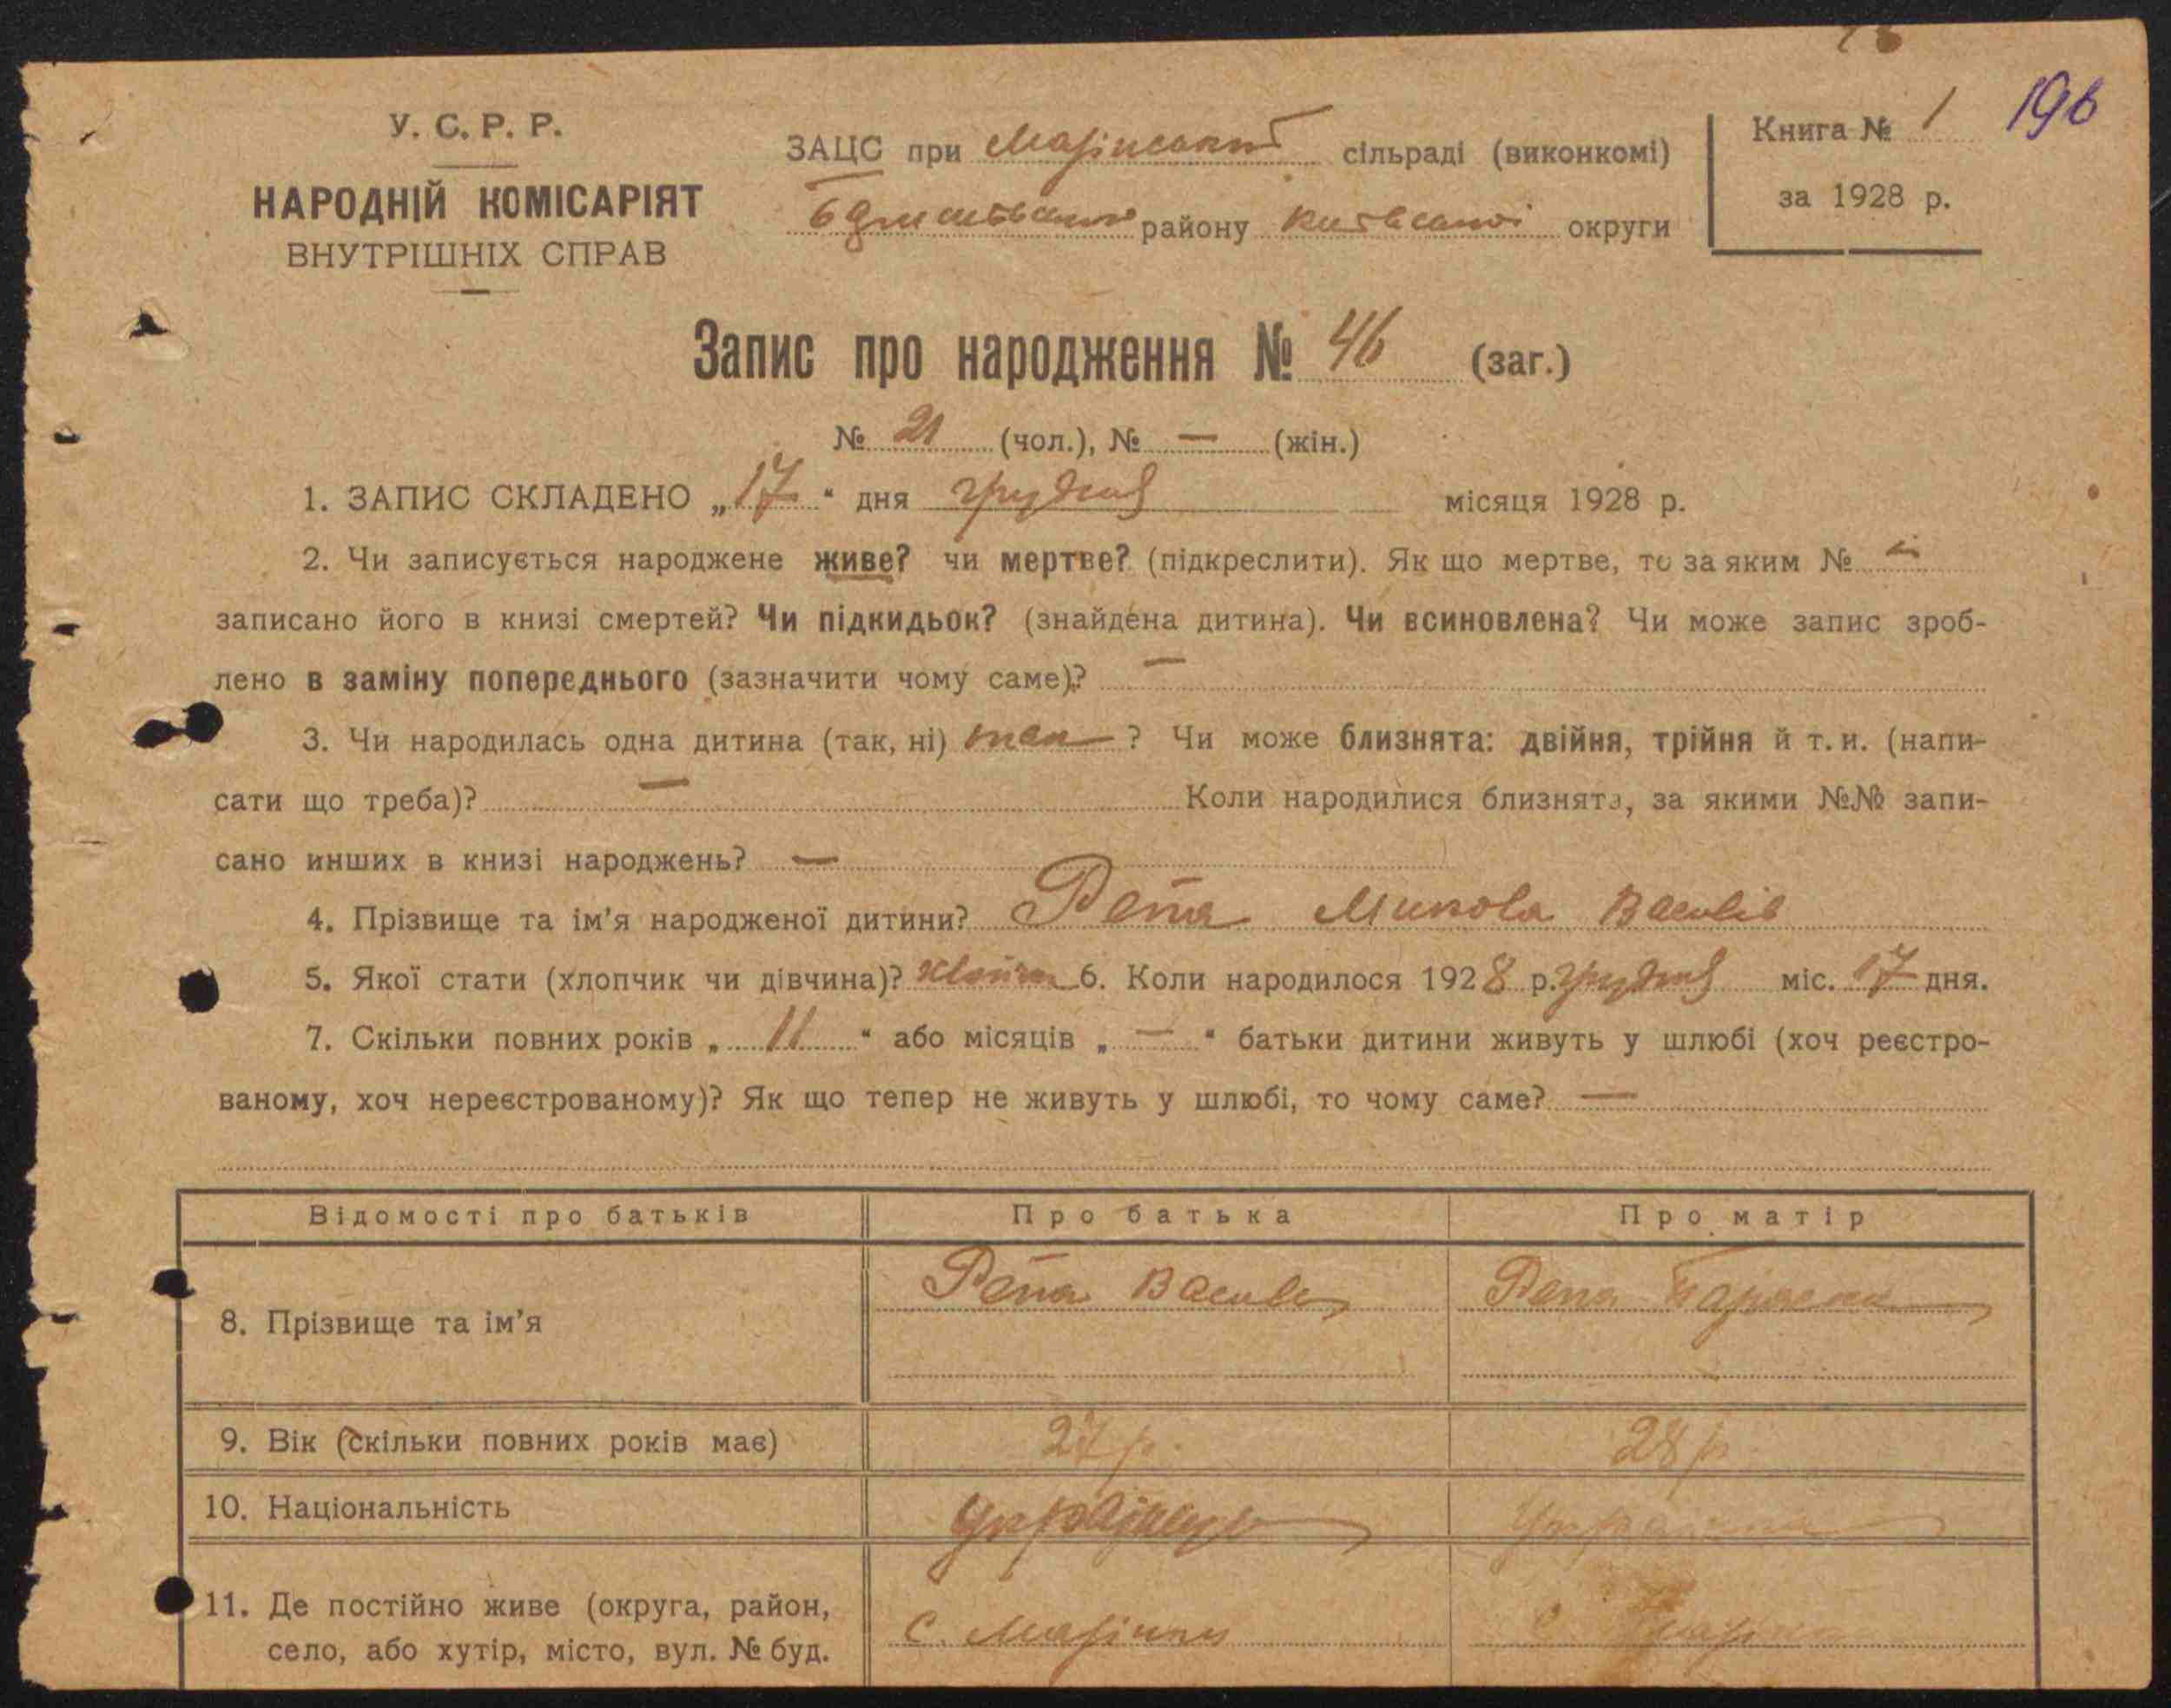 196
У. С. Р. Р.
НАРОДНІЙ КОМІСАРІЯТ
ВНУТРІШНІХ СПРАВ
ЗАЦС при Марінський сільраді (виконкомі)
району Київської округи
Книга № 1
за 1928 р.
Запис про народження № 46 (заг.)
№ 21 (чол.), № — (жін.)
1. ЗАПИС СКЛАДЕНО „17“ дня грудня місяця 1928 р.
2. Чи записується народжене живе? чи мертве? (підкреслити). Як що мертве, то за яким № —
записано його в книзі смертей? Чи підкидьок? (знайдена дитина). Чи всиновлена? Чи може запис зроб-
лено в заміну попереднього (зазначити чому саме)? —
3. Чи народилась одна дитина (так, ні) так ? Чи може близнята: двійня, трійня й т. и. (напи-
сати що треба)? — Коли народилися близнята, за якими №№ запи-
сано инших в книзі народжень? —
4. Прізвище та ім'я народженої дитини? Репа Микола Василів
5. Якої стати (хлопчик чи дівчина)? 6. Коли народилося 1928 р. грудня міс. 17 дня.
7. Скільки повних років „ 11 “ або місяців „ — “ батьки дитини живуть у шлюбі (хоч реєстро-
ваному, хоч нереєстрованому)? Як що тепер не живуть у шлюбі, то чому саме? —
Відомості про батьків Про батька Про матір
8. Прізвище та ім'я Репа Василь Репа Параска
9. Вік (скільки повних років має) 27 р. 28 р
10. Національність Українець Українка
11. Де постійно живе (округа, район,
село, або хутір, місто, вул. № буд. с. Марінки с Марінки